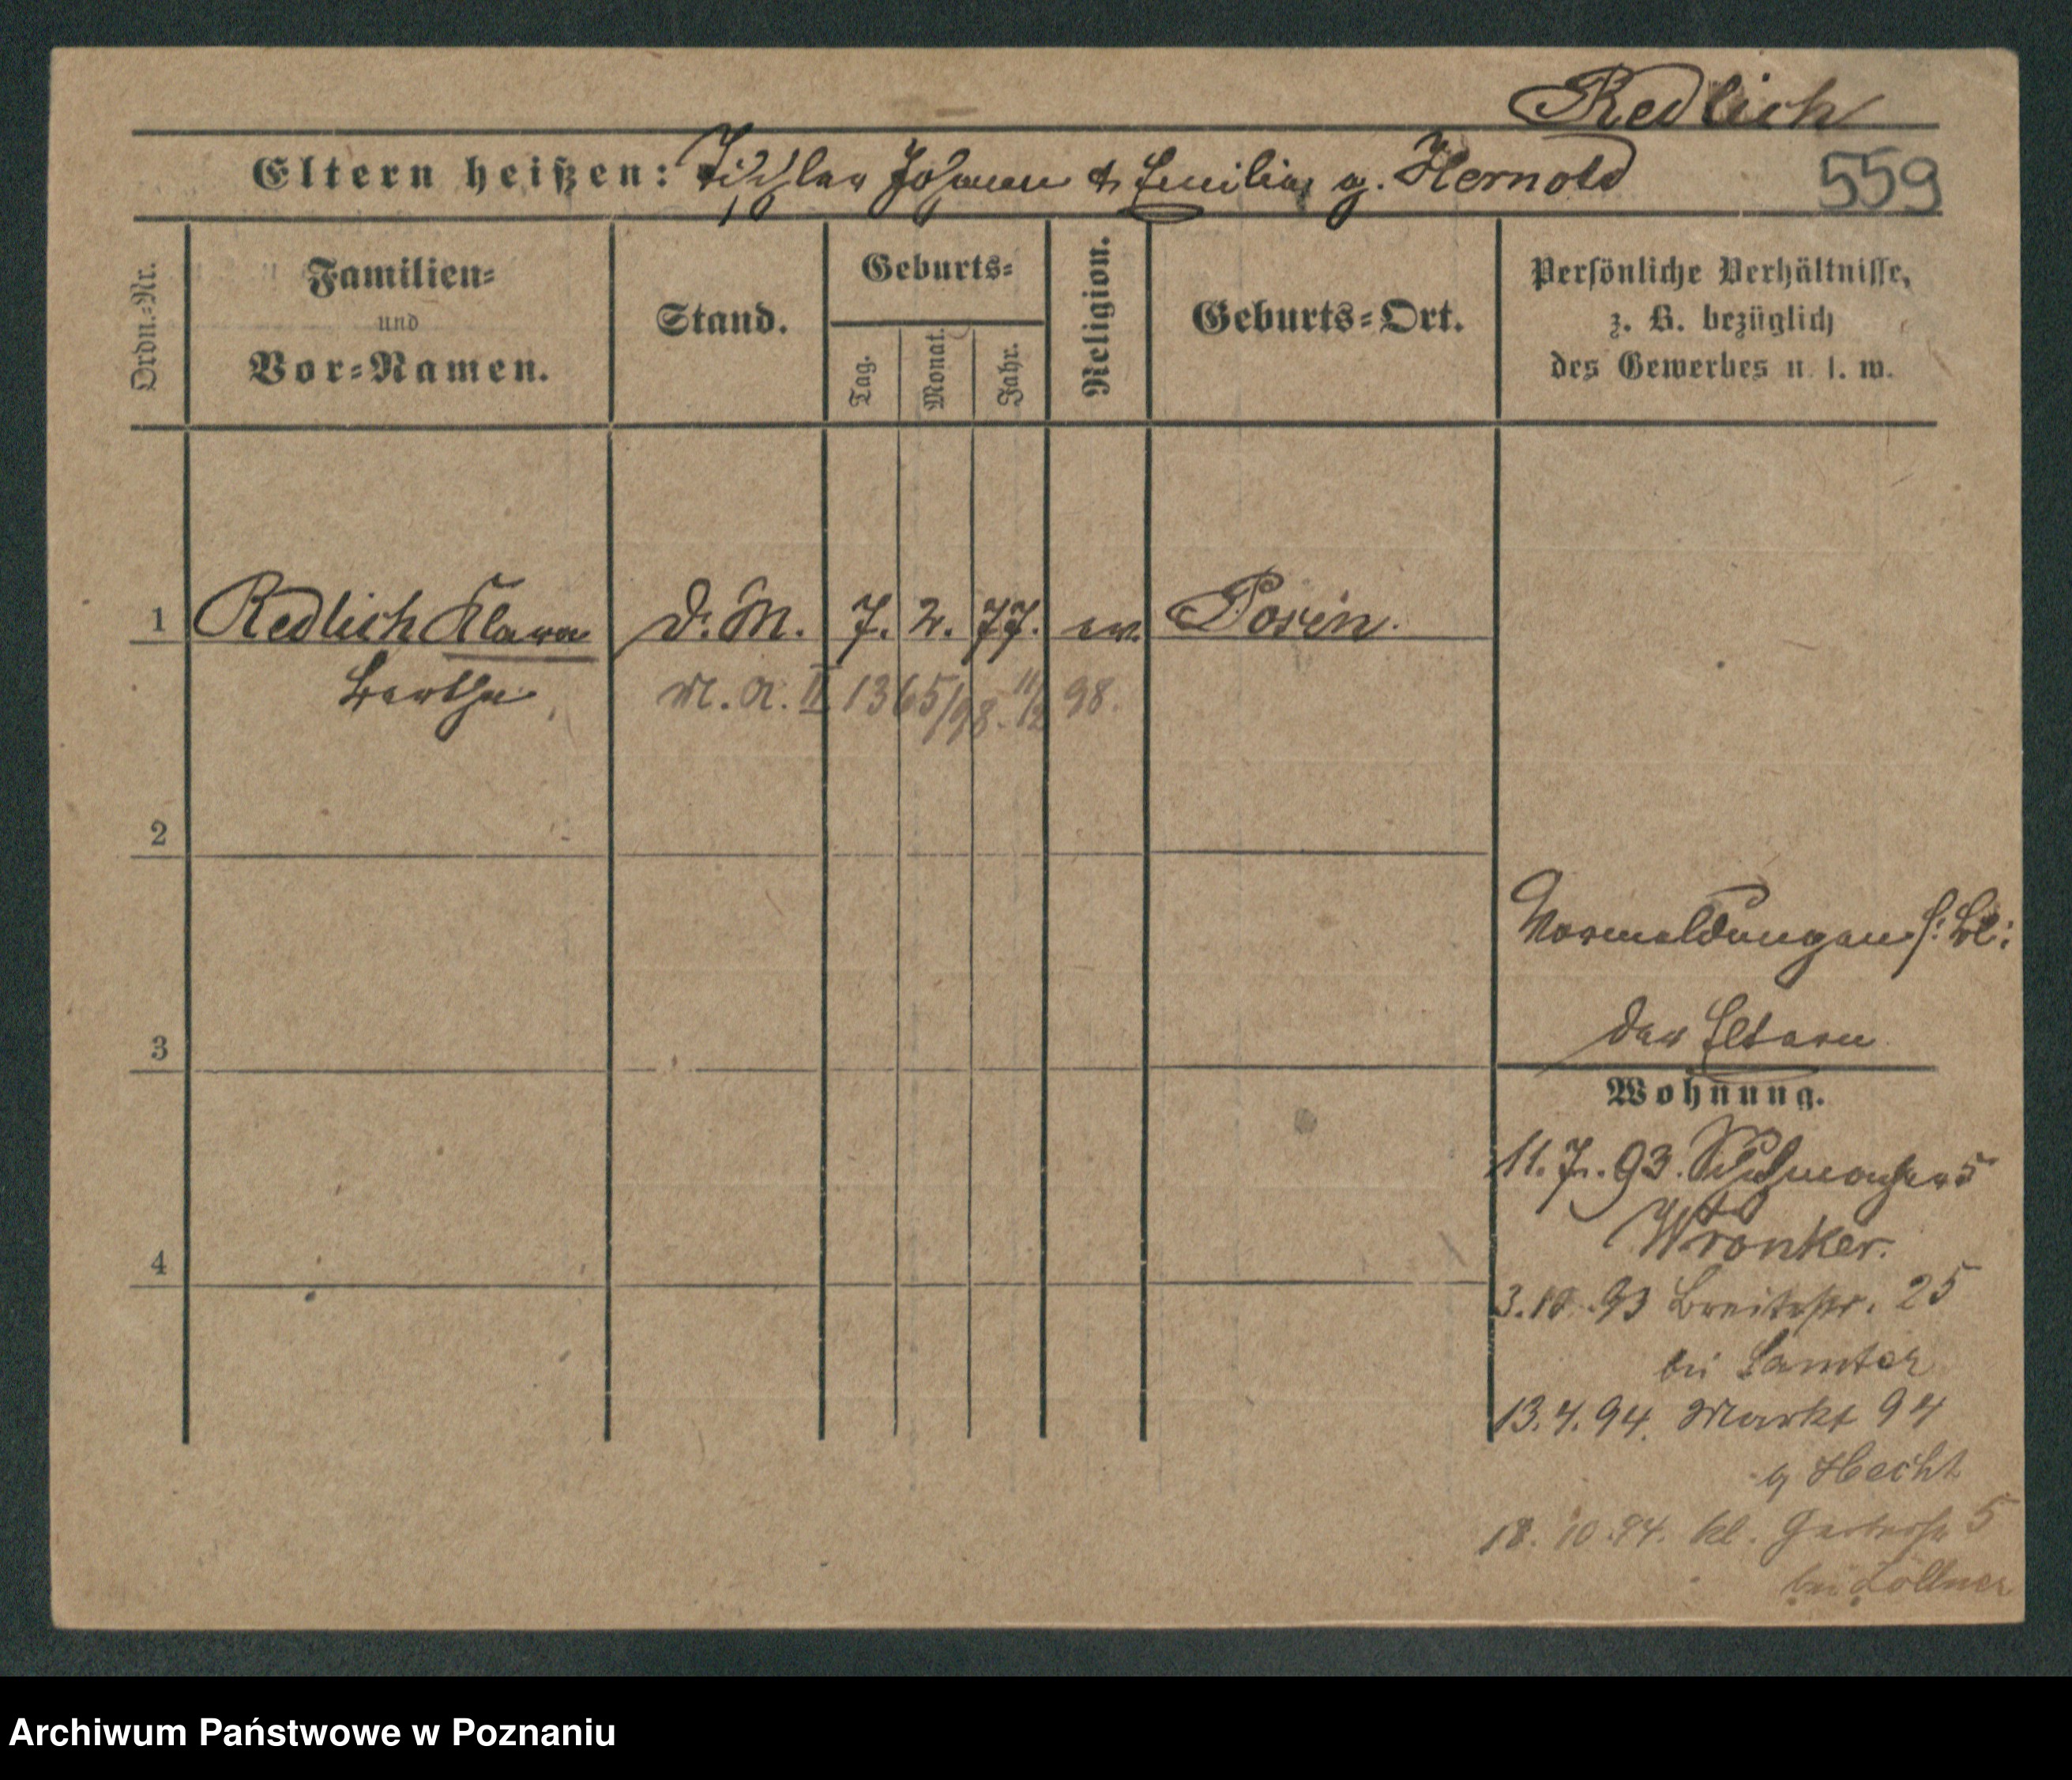 Redlich
Eltern heißen: Tischler Johann & Emilie g. Hernold
559
Ordn.-Nr.
Familien-
und
Vor-Namen.
Stand.
Geburts-
Tag.
Monat.
Jahr.
Religion.
Geburts-Ort.
Persönliche Verhältnisse,
z. B. bezüglich
des Gewerbes u. s. w.
1 Redlich Klara d. M. 7. 2. 77. ev. Posen.
Bertha
M. A. II 1365/98. 11/12 98.
2
Vormeldungen s. Bl:
3
der Eltern
Wohnung.
11. 7. 93. 5
Wronker.
4
3. 10. 93 Breitestr. 25
bei Samter
13. 4. 94. Markt 94
Hecht
18. 10. 94. kl. Gerberstr 5
bei Zöllner
Archiwum Państwowe w Poznaniu